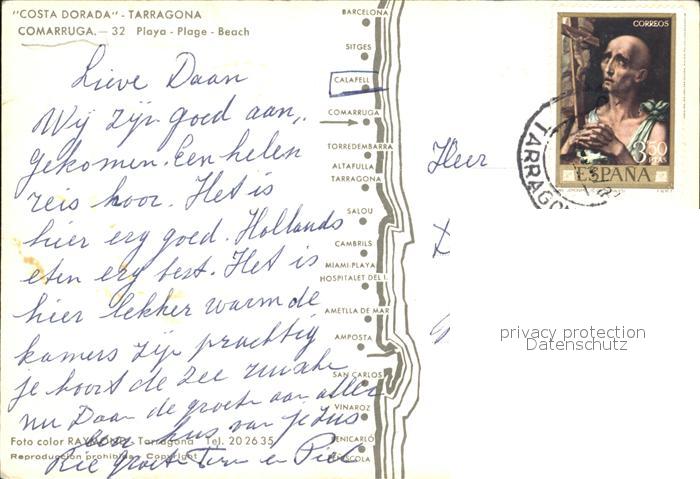 "COSTA DORADA" - TARRAGONA
COMARRUGA. - 32 Playa - Plage - Beach
Lieve Daan
Wij zijn goed aan,,
gekomen. Een helen
reis hoor. Het is
hier erg goed. Hollands
eten erg best. Het is
hier lekker warm de
kamers zijn prachtig
je hoort de zee
nu Daan de groeten aan allen
een kus van je zus
Rie groet Tim en Piet
Foto color RAYMOND - Tarragona Tel. 20 26 35
Reproducción prohibida - Copyright
BARCELONA
SITGES
CALAFELL
COMARRUGA
TORREDEMBARRA
ALTAFULLA
TARRAGONA
SALOU
CAMBRILS
MIAMI-PLAYA
HOSPITALET DEL I.
AMETLLA DE MAR
AMPOSTA
SAN CARLOS
VINAROZ
BENICARLÓ
PEÑISCOLA
Heer
CORREOS
3'50
PTAS
ESPAÑA
TARRAGONA
privacy protection
Datenschutz